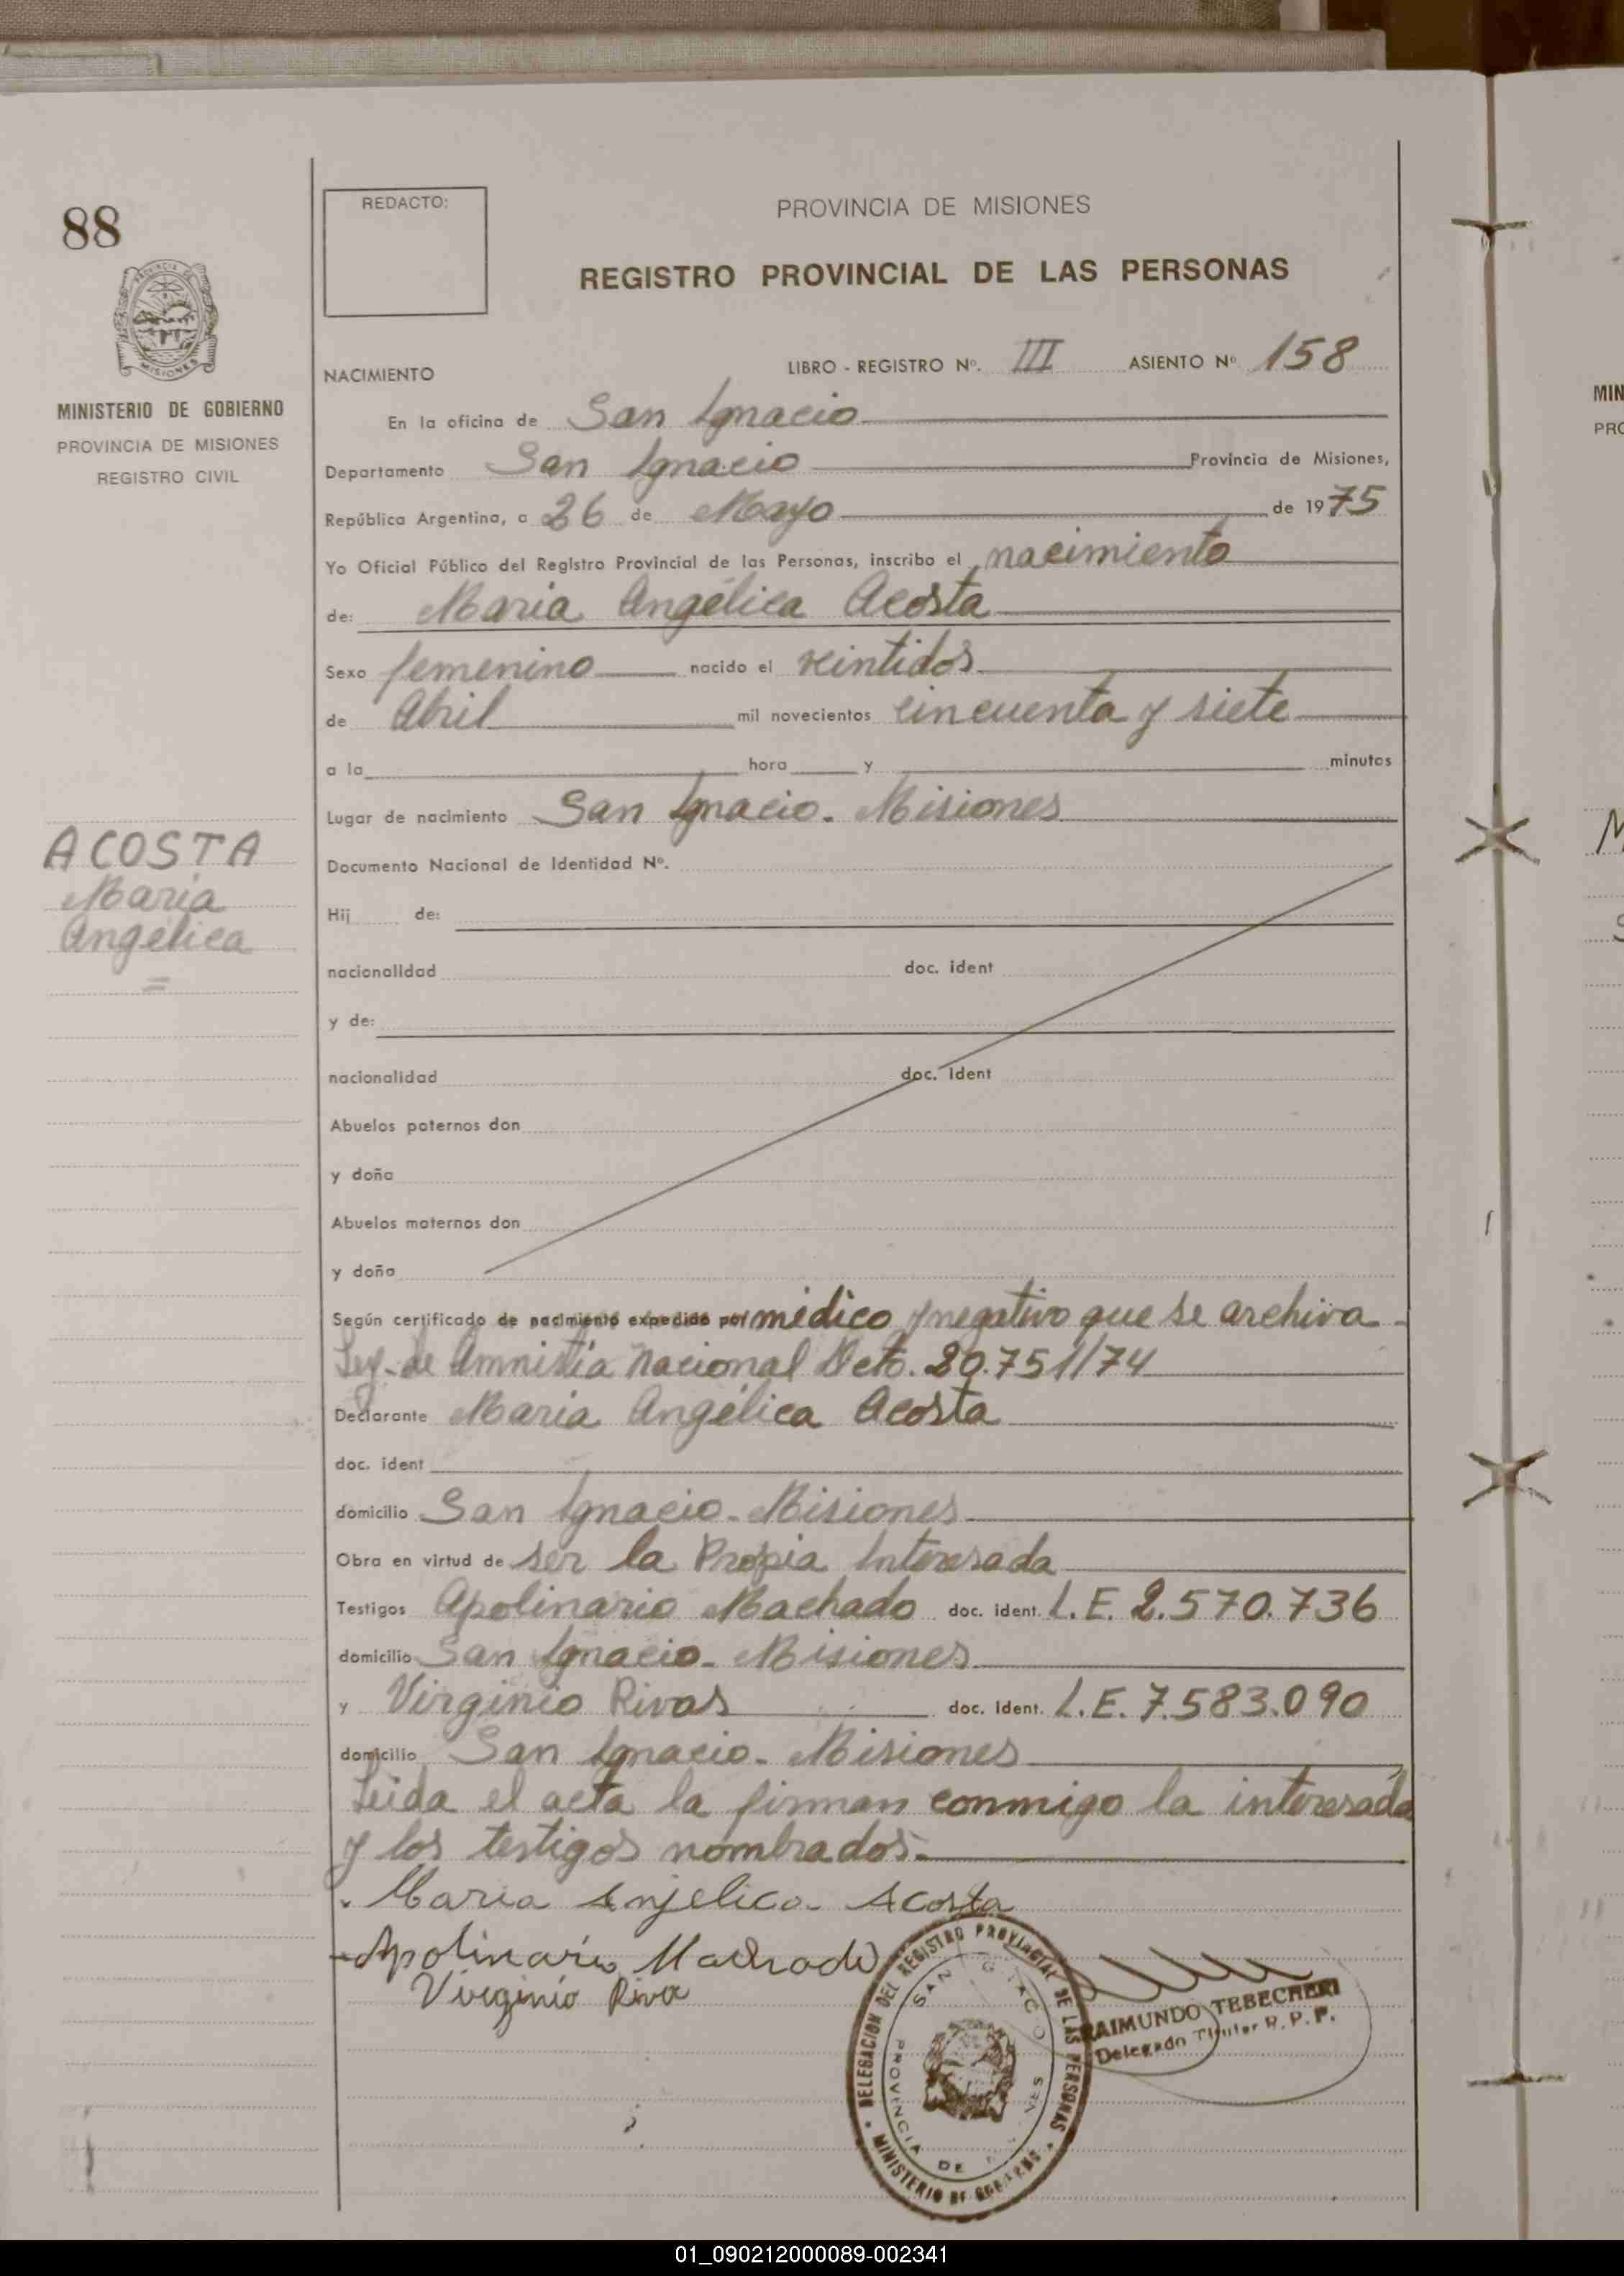 88
REDACTO:
PROVINCIA DE MISIONES
REGISTRO PROVINCIAL DE LAS PERSONAS
MISIONES
MINISTERIO DE GOBIERNO
PROVINCIA DE MISIONES
REGISTRO CIVIL
NACIMIENTO LIBRO - REGISTRO Nº. III ASIENTO Nº 158
En la oficina de San Ignacio
Departamento San Ignacio Provincia de Misiones,
República Argentina, a 26 de Mayo de 1975
Yo Oficial Público del Registro Provincial de las Personas, inscribo el nacimiento
de: Maria Angélica Acosta
Sexo femenino nacido el veintidos
de Abril mil novecientos cincuenta y siete
a la hora y minutos
Lugar de nacimiento San Ignacio. Misiones
ACOSTA
Maria
Angélica
Documento Nacional de Identidad Nº.
Hij de:
nacionalidad doc. ident
y de:
nacionalidad doc. ident
Abuelos paternos don
y doña
Abuelos maternos don
y doña
Según certificado de nacimiento expedido por médico y negativo que se archiva.
Ley. de Amnistía Nacional Dcto. 20.751/74
Declarante Maria Angélica Acosta
doc. ident
domicilio San Ignacio. Misiones
Obra en virtud de ser la Propia Interesada
Testigos Apolinario Machado doc. ident. L.E. 2.570.736
domicilio San Ignacio. Misiones
y Virginio Rivas doc. ident. L.E. 7.583.090
domicilio San Ignacio. Misiones
Leida el acta la firman conmigo la interesada
y los testigos nombrados.
Maria Anjelica Acosta
Apolinario Machado
Virginio Riva
DELEGACION DEL REGISTRO PROVINCIAL DE LAS PERSONAS
SAN
PROVINCIA DE
MINISTERIO DE GOBIERNO
RAIMUNDO TEBECHERI
Delegado Titular R. P. P.
MIN
PRO
M
01_090212000089-002341